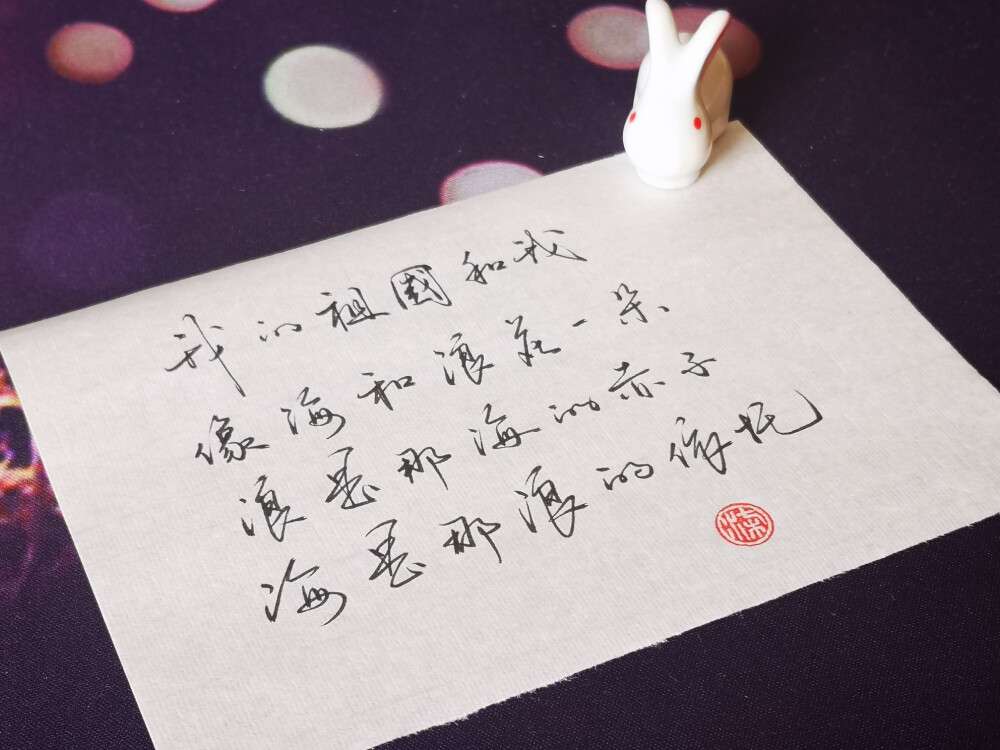 我的祖國和我
像海和浪花一朵
浪是那海的赤子
海是那浪的依托